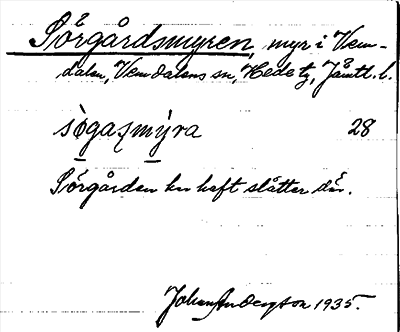 Sörgårdsmyren, myr i Vem-
dalen, Vemdalens sn, Hede tg, Jämtl. l.
sö̀gaʂmýra 28
Sörgården har haft slåtter där.
Johan Andersson 1935.